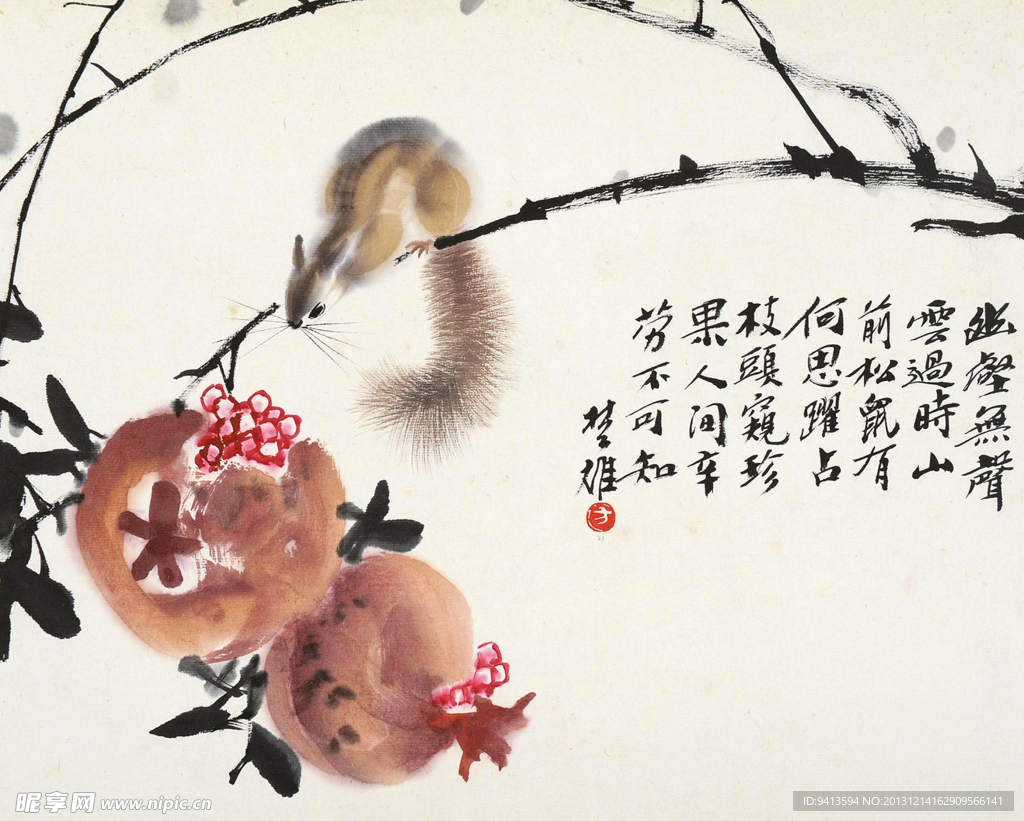 幽壑無聲
雲過時山
前松鼠有
何思躍占
枝頭窺珍
果人间辛
劳不可知
楚雄
昵享网 www.nipic.cn
ID:9413594 NO:20131214162909566141